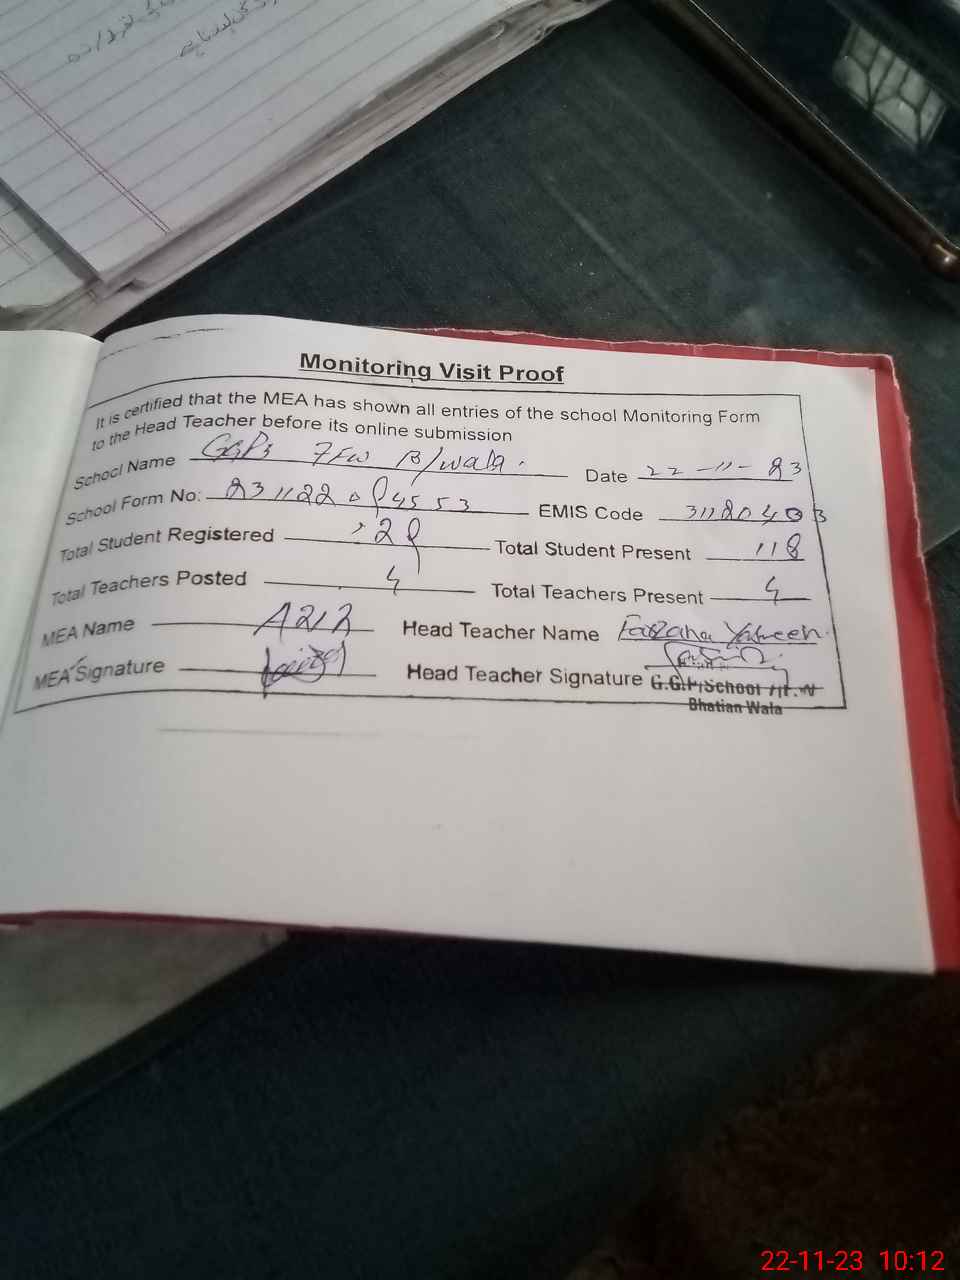 Monitoring Visit Proof
It is certified that the MEA has shown all entries of the school Monitoring Form
to the Head Teacher before its online submission
School Name GGPS 7FW B/wala. Date 22-11-23
School Form No: 23112204553 EMIS Code 31180403
Total Student Registered Total Student Present 118
Total Teachers Posted 4 Total Teachers Present 4
MEA Name Aziz Head Teacher Name Farzana Yasmeen.
MEA Signature Head Teacher Signature G.G.P/School
Bhatian Wala
22-11-23 10:12